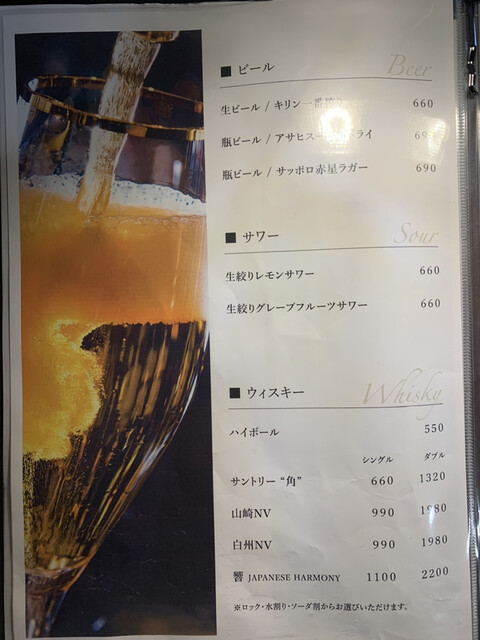 ■ ビール Beer
生ビール / キリン一番搾り 660
瓶ビール / アサヒスードライ 690
瓶ビール / サッポロ赤星ラガー 690
■ サワー Sour
生絞りレモンサワー 660
生絞りグレープフルーツサワー 660
■ ウィスキー Whisky
ハイボール 550
シングル ダブル
サントリー “角” 660 1320
山崎NV 990 1980
白州NV 990 1980
響 JAPANESE HARMONY 1100 2200
※ロック・水割り・ソーダ割からお選びいただけます。